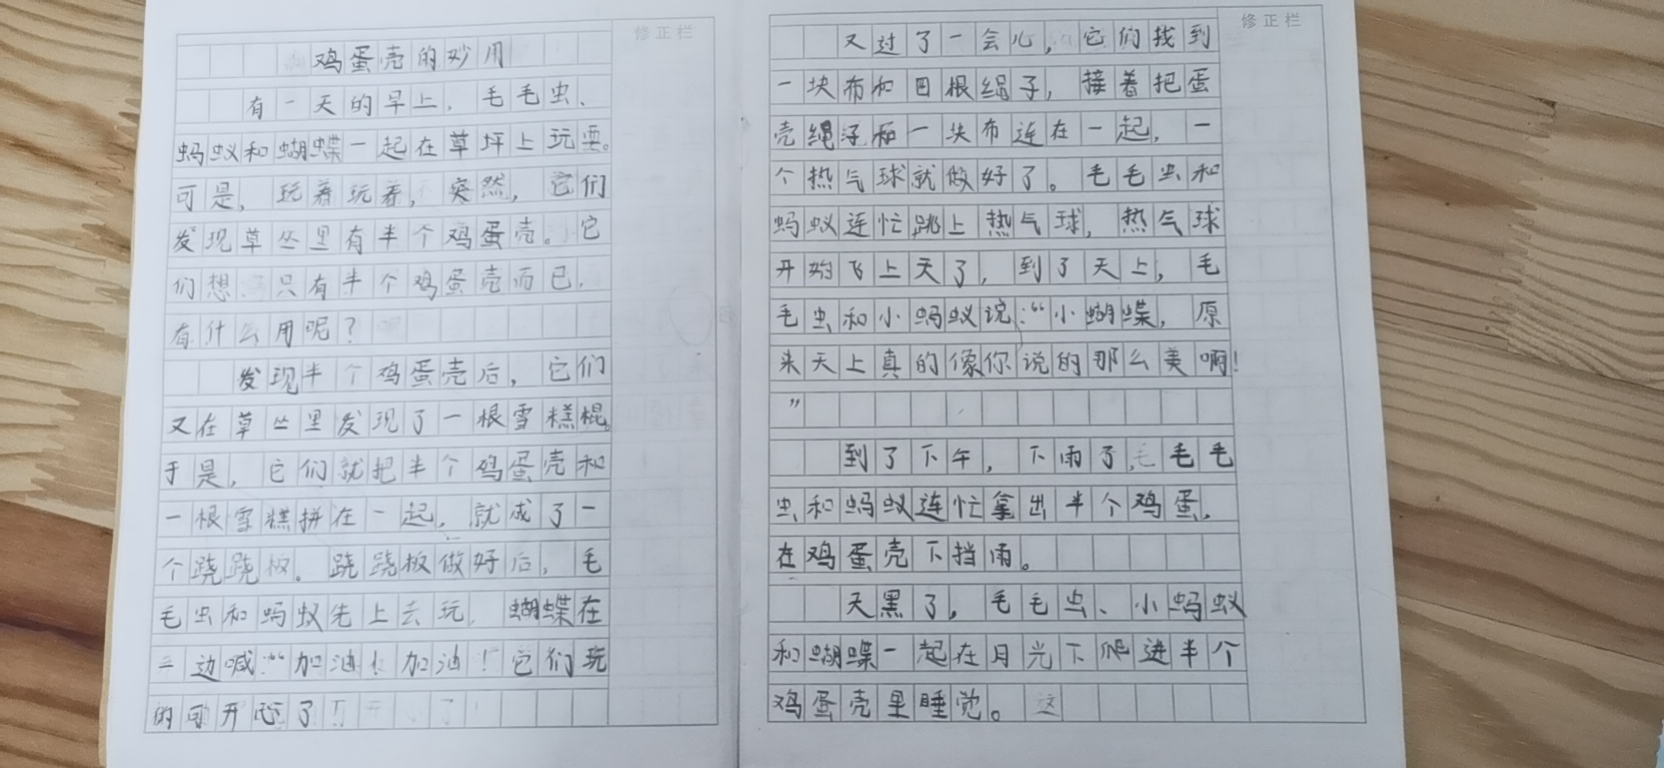 修正栏
鸡蛋壳的妙用
有一天的早上，毛毛虫、
蚂蚁和蝴蝶一起在草坪上玩耍。
可是，玩着玩着，突然，它们
发现草丛里有半个鸡蛋壳。它
们想：只有半个鸡蛋壳而已，
有什么用呢？
发现半个鸡蛋壳后，它们
又在草丛里发现了一根雪糕棍。
于是，它们就把半个鸡蛋壳和
一根雪糕拼在一起，就成了一
个跷跷板。跷跷板做好后，毛
毛虫和蚂蚁先上去玩，蝴蝶在
一边喊：“加油！加油！它们玩
的可开心了！
修正栏
又过了一会儿，它们找到
一块布和四根绳子，接着把蛋
壳绳子和一块布连在一起，一
个热气球就做好了。毛毛虫和
蚂蚁连忙跳上热气球，热气球
开始飞上天了，到了天上，毛
毛虫和小蚂蚁说：“小蝴蝶，原
来天上真的像你说的那么美啊！
”
到了下午，下雨了，毛毛
虫和蚂蚁连忙拿出半个鸡蛋，
在鸡蛋壳下挡雨。
天黑了，毛毛虫、小蚂蚁
和蝴蝶一起在月光下爬进半个
鸡蛋壳里睡觉。